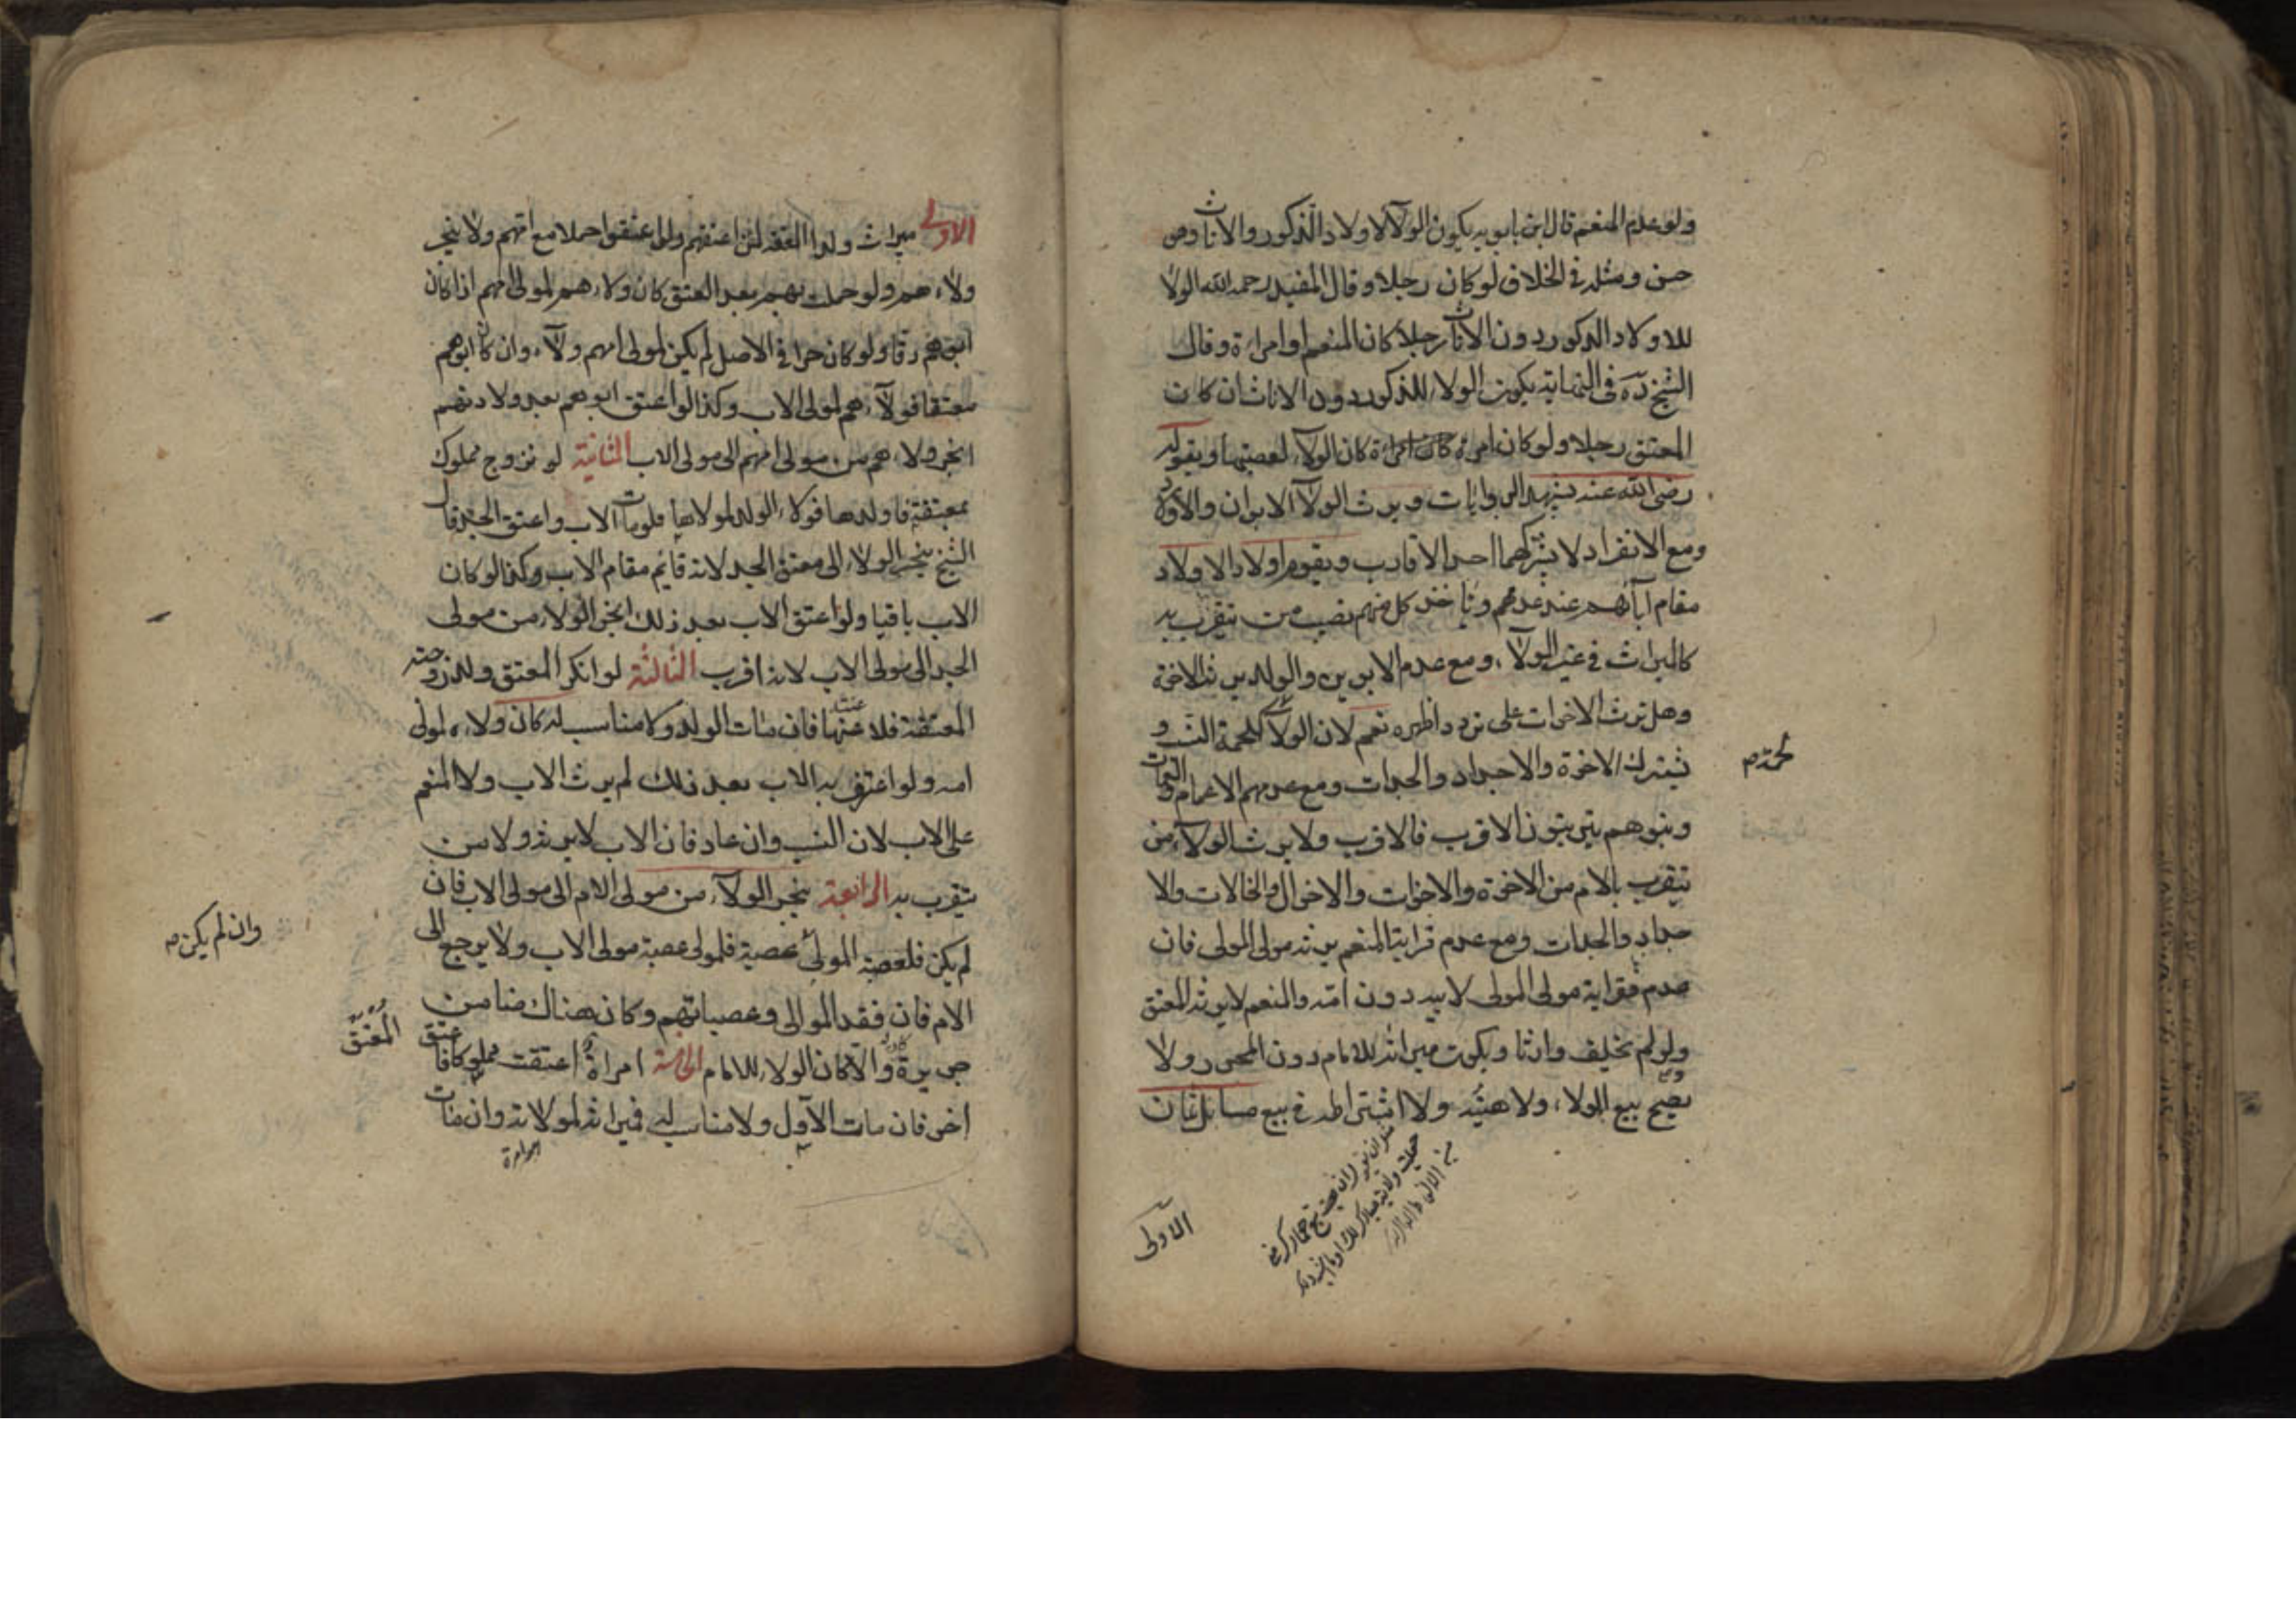 ولو عدم المنعم قال ابن بابويه يكون الولآ لاولاد الذكور والاناث وهو
حسن ومثله في الخلاف لو كان رجلا وقال المفيد رحمه الله الولا
للاولاد الذكور دون الاناث رجلا كان المنعم او امراة وقال
الشيخ ره في النهاية يكون الولاء للذكور دون الاناث ان كان
المعتق رجلا ولو كان امرة كان الولآء لعصبتها وبقوله
رضى الله عنه يشهد الروايات ويرث الولآ الابوان والاولاد
ومع الانفراد لا يشركهما احد الاقارب ويقوم اولاد الاولاد
مقام آبائهم عند عدمهم وياخذ كل منهم نصيب من يتقرب به
كالميراث في غير الولآء ومع عدم الابوين والولد يرث الاخوة
وهل ترث الاخوات على تردد اظهره نعم لان الولآ كلحمة النسب و
يشترك الاخوة والاجداد والجدات ومع عدمهم الاعمام والعمات
وبنوهم يترتبون الاقرب فالاقرب ولا يرث الولآء من
يتقرب بالام من الاخوة والاخوات والاخوال والخالات والا
جداد والجدات ومع عدم قرابة المنعم يرثه مولى المولى فان
عدم فقرابة مولى المولى لابيه دون امه والمنعم لا يرثه المعتق
ولو لم يخلف وارثا ويكون ميراثه للامام دون المحرر ولا
يصح بيع الولاء ولا هبته ولا اشتراطه في بيع مسايل ثمان
الاولى
الاولى ميراث ولد المعتقة لمن اعتقهم ولو اعتقوا حملا مع امهم ولا ينجر
ولاءهم ولو حملت بهم بعد العتق كان ولاءهم لمولى امهم اذا كان
ابوهم رقا ولو كان حرا في الاصل لم يكن لمولى امهم ولآء وان كان ابوهم
معتقا فولآءهم لمولى الاب وكذا لو اعتق ابوهم بعد ولادتهم
انجر ولاءهم من مولى امهم الى مولى الاب الثانية لو تزوج مملوك
بمعتقة فاولدها فولاء الولد لمولاها فلو مات الاب واعتق الجد قال
الشيخ ينجر الولاء الى معتق الجد لانه قائم مقام الاب وكذا لو كان
الاب باقيا ولو اعتق الاب بعد ذلك انجر الولاء من مولى
الجد الى مولى الاب لانه اقرب الثالثة لو انكر المعتق ولد زوجته
المعتقة فلاعنها فان مات الولد ولا مناسب له كان ولاءه لمولى
امه ولو اعترف به الاب بعد ذلك لم يرث الاب ولا المنعم
على الاب لان النسب وان عاد فان الاب لا يرثه ولا من
يتقرب به الرابعة ينجر الولآء من مولى الام الى مولى الاب فان
لم يكن فلعصبة المولى عصبة فلمولى عصبة مولى الاب ولا يرجع الى
وان لم يكن م
الام فان فقد الموالى وعصباتهم وكان هناك ضامن
جريرة والا كان الولاء للامام الخامسة امراة اعتقت مملوكا فاعتق
المعتق
اخر فان مات الاول ولا مناسب له فميراثه لمولاته وان مات